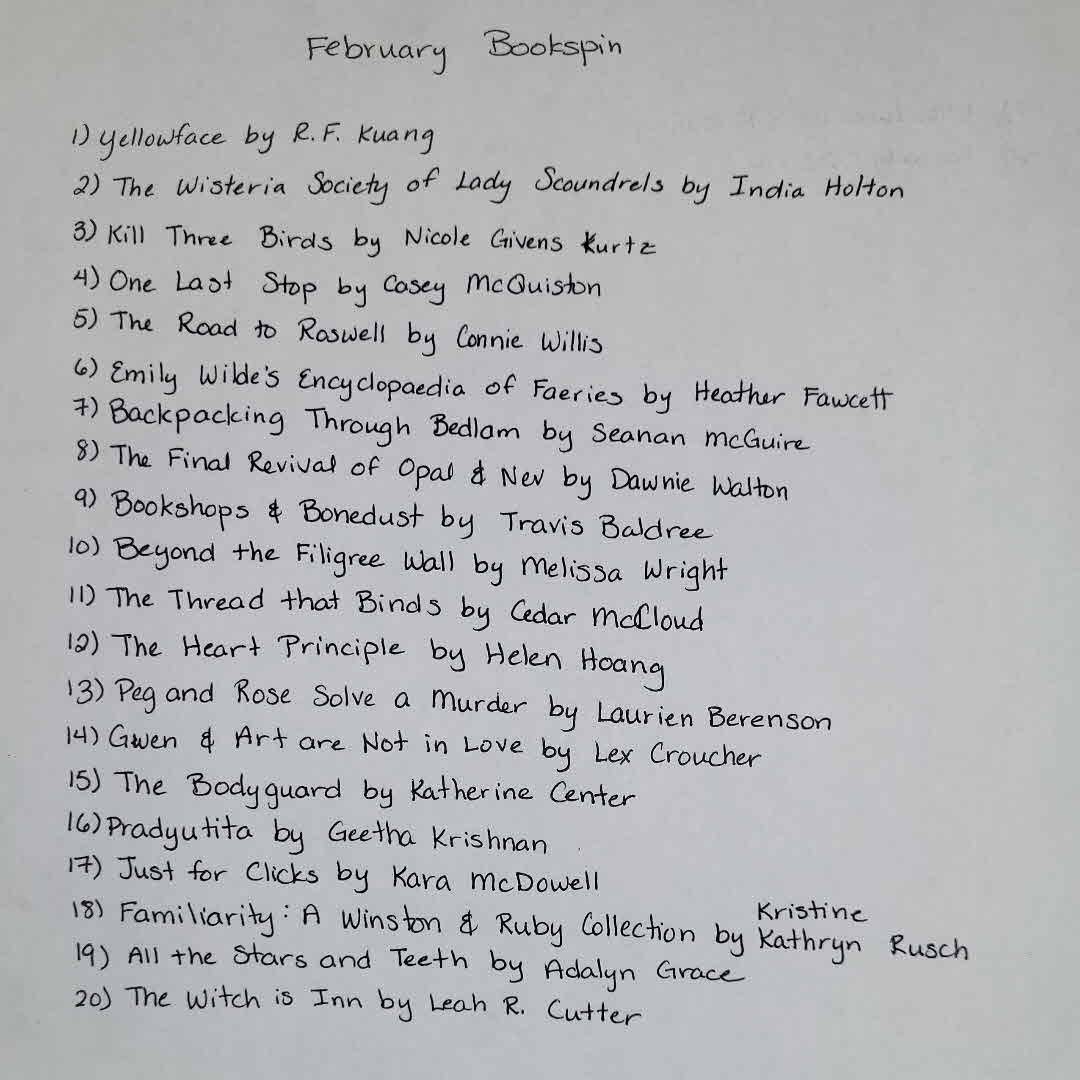 February Bookspin
1) Yellowface by R.F. Kuang
2) The Wisteria Society of Lady Scoundrels by India Holton
3) Kill Three Birds by Nicole Givens Kurtz
4) One Last Stop by Casey McQuiston
5) The Road to Roswell by Connie Willis
6) Emily Wilde's Encyclopaedia of Faeries by Heather Fawcett
7) Backpacking Through Bedlam by Seanan McGuire
8) The Final Revival of Opal & Nev by Dawnie Walton
9) Bookshops & Bonedust by Travis Baldree
10) Beyond the Filigree Wall by Melissa Wright
11) The Thread that Binds by Cedar McCloud
12) The Heart Principle by Helen Hoang
13) Peg and Rose Solve a Murder by Laurien Berenson
14) Gwen & Art are Not in Love by Lex Croucher
15) The Bodyguard by Katherine Center
16) Pradyutita by Geetha Krishnan
17) Just for Clicks by Kara McDowell
18) Familiarity: A Winston & Ruby Collection by Kristine Kathryn Rusch
19) All the Stars and Teeth by Adalyn Grace
20) The Witch is Inn by Leah R. Cutter